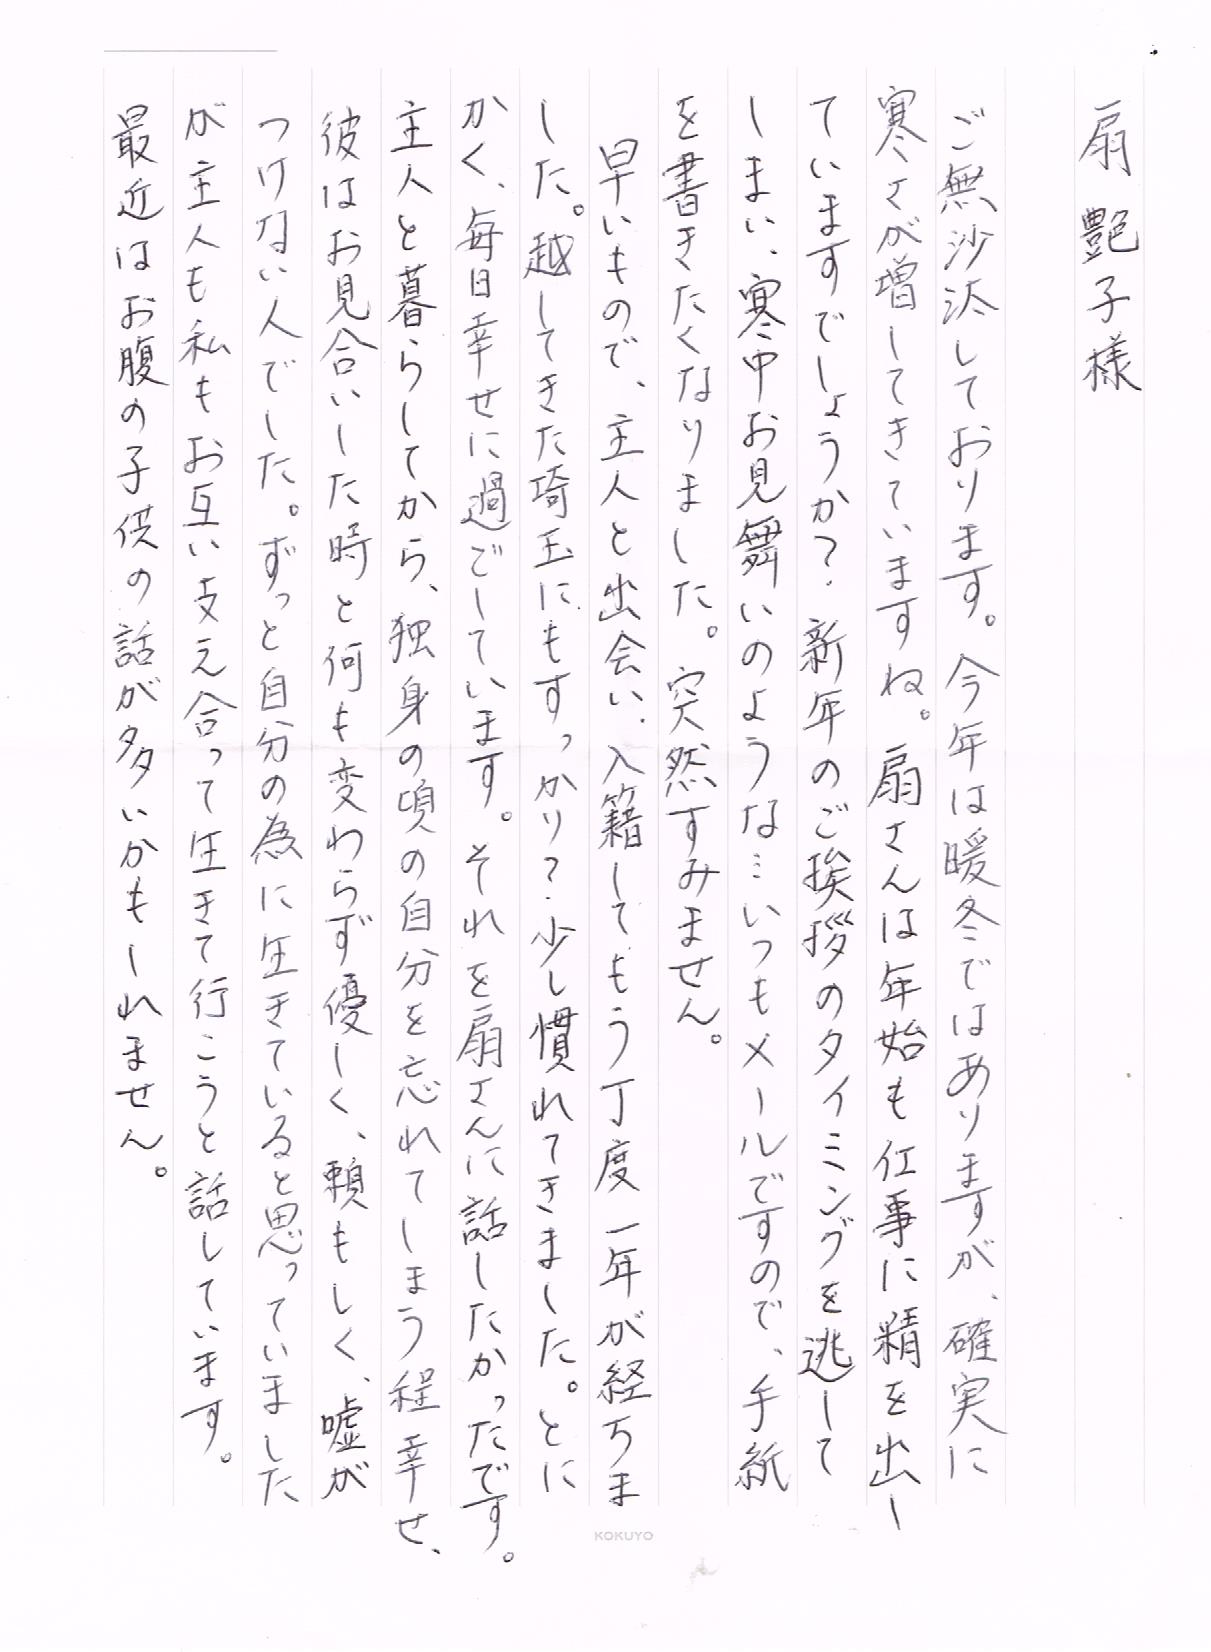 扇 艶子様
ご無沙汰しております。今年は暖冬ではありますが、確実に
寒さが増してきていますね。扇さんは年始も仕事に精を出し
ていますでしょうか？新年のご挨拶のタイミングを逃して
しまい、寒中お見舞いのような…いつもメールですので、手紙
を書きたくなりました。突然すみません。
早いもので、主人と出会い、入籍してもう丁度一年が経ちま
した。越してきた埼玉にもすっかり？少し慣れてきました。とに
かく、毎日幸せに過ごしています。それを扇さんに話したかったです。
主人と暮らしてから、独身の頃の自分を忘れてしまう程幸せ、
彼はお見合いした時と何も変わらず優しく、頼もしく、嘘が
つけない人でした。ずっと自分の為に生きていると思っていました
が主人も私もお互い支え合って生きて行こうと話しています。
最近はお腹の子供の話が多いかもしれません。
KOKUYO